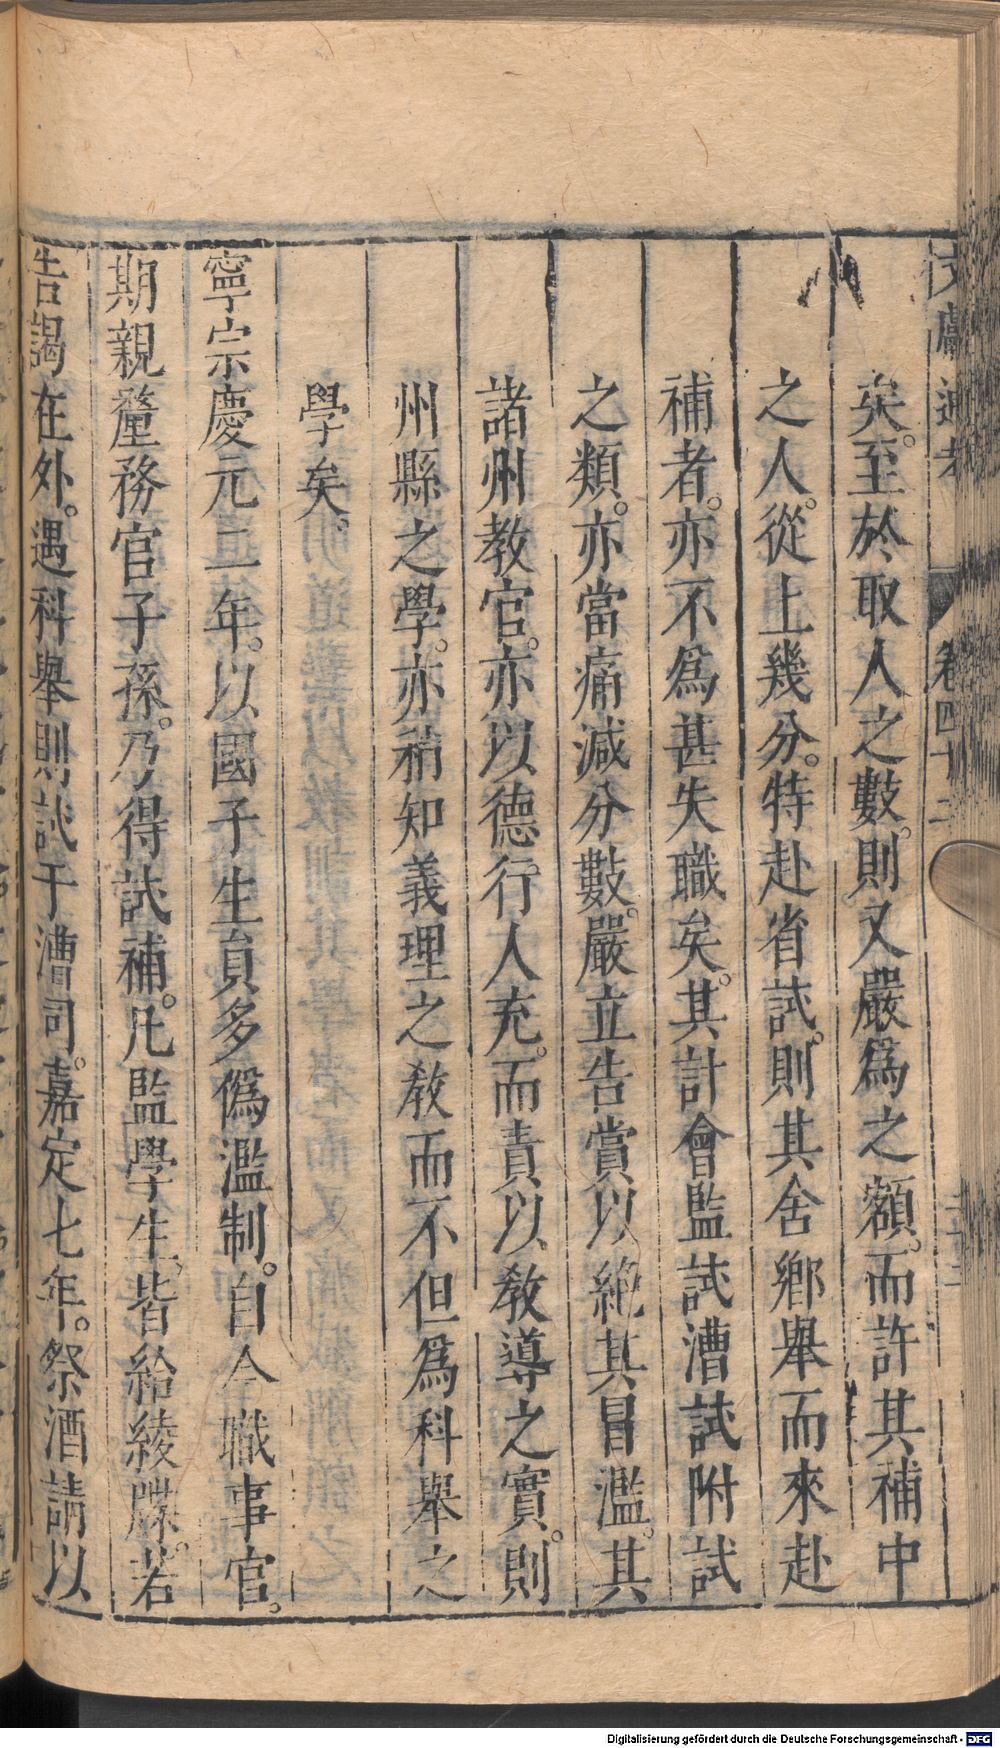 文獻通考 卷四十二 二十二
矣。至於取人之數。則又嚴爲之額。而許其補中
之人。從上幾分。特赴省試。則其舍鄉舉而來赴
補者。亦不爲甚失職矣。其計會監試漕試附試
之類。亦當痛減分數。嚴立告賞。以絕其冒濫。其
諸州教官。亦以德行人充。而責以教導之實。則
州縣之學。亦稍知義理之教而不但爲科舉之
學矣。
寧宗慶元二年。以國子生員多僞濫制。自今職事官。
期親釐務官子孫。乃得試補。凡監學生。皆給綾牒。若
告謁在外。遇科舉則試于漕司。嘉定七年。祭酒請以
Digitalisierung gefördert durch die Deutsche Forschungsgemeinschaft - DFG